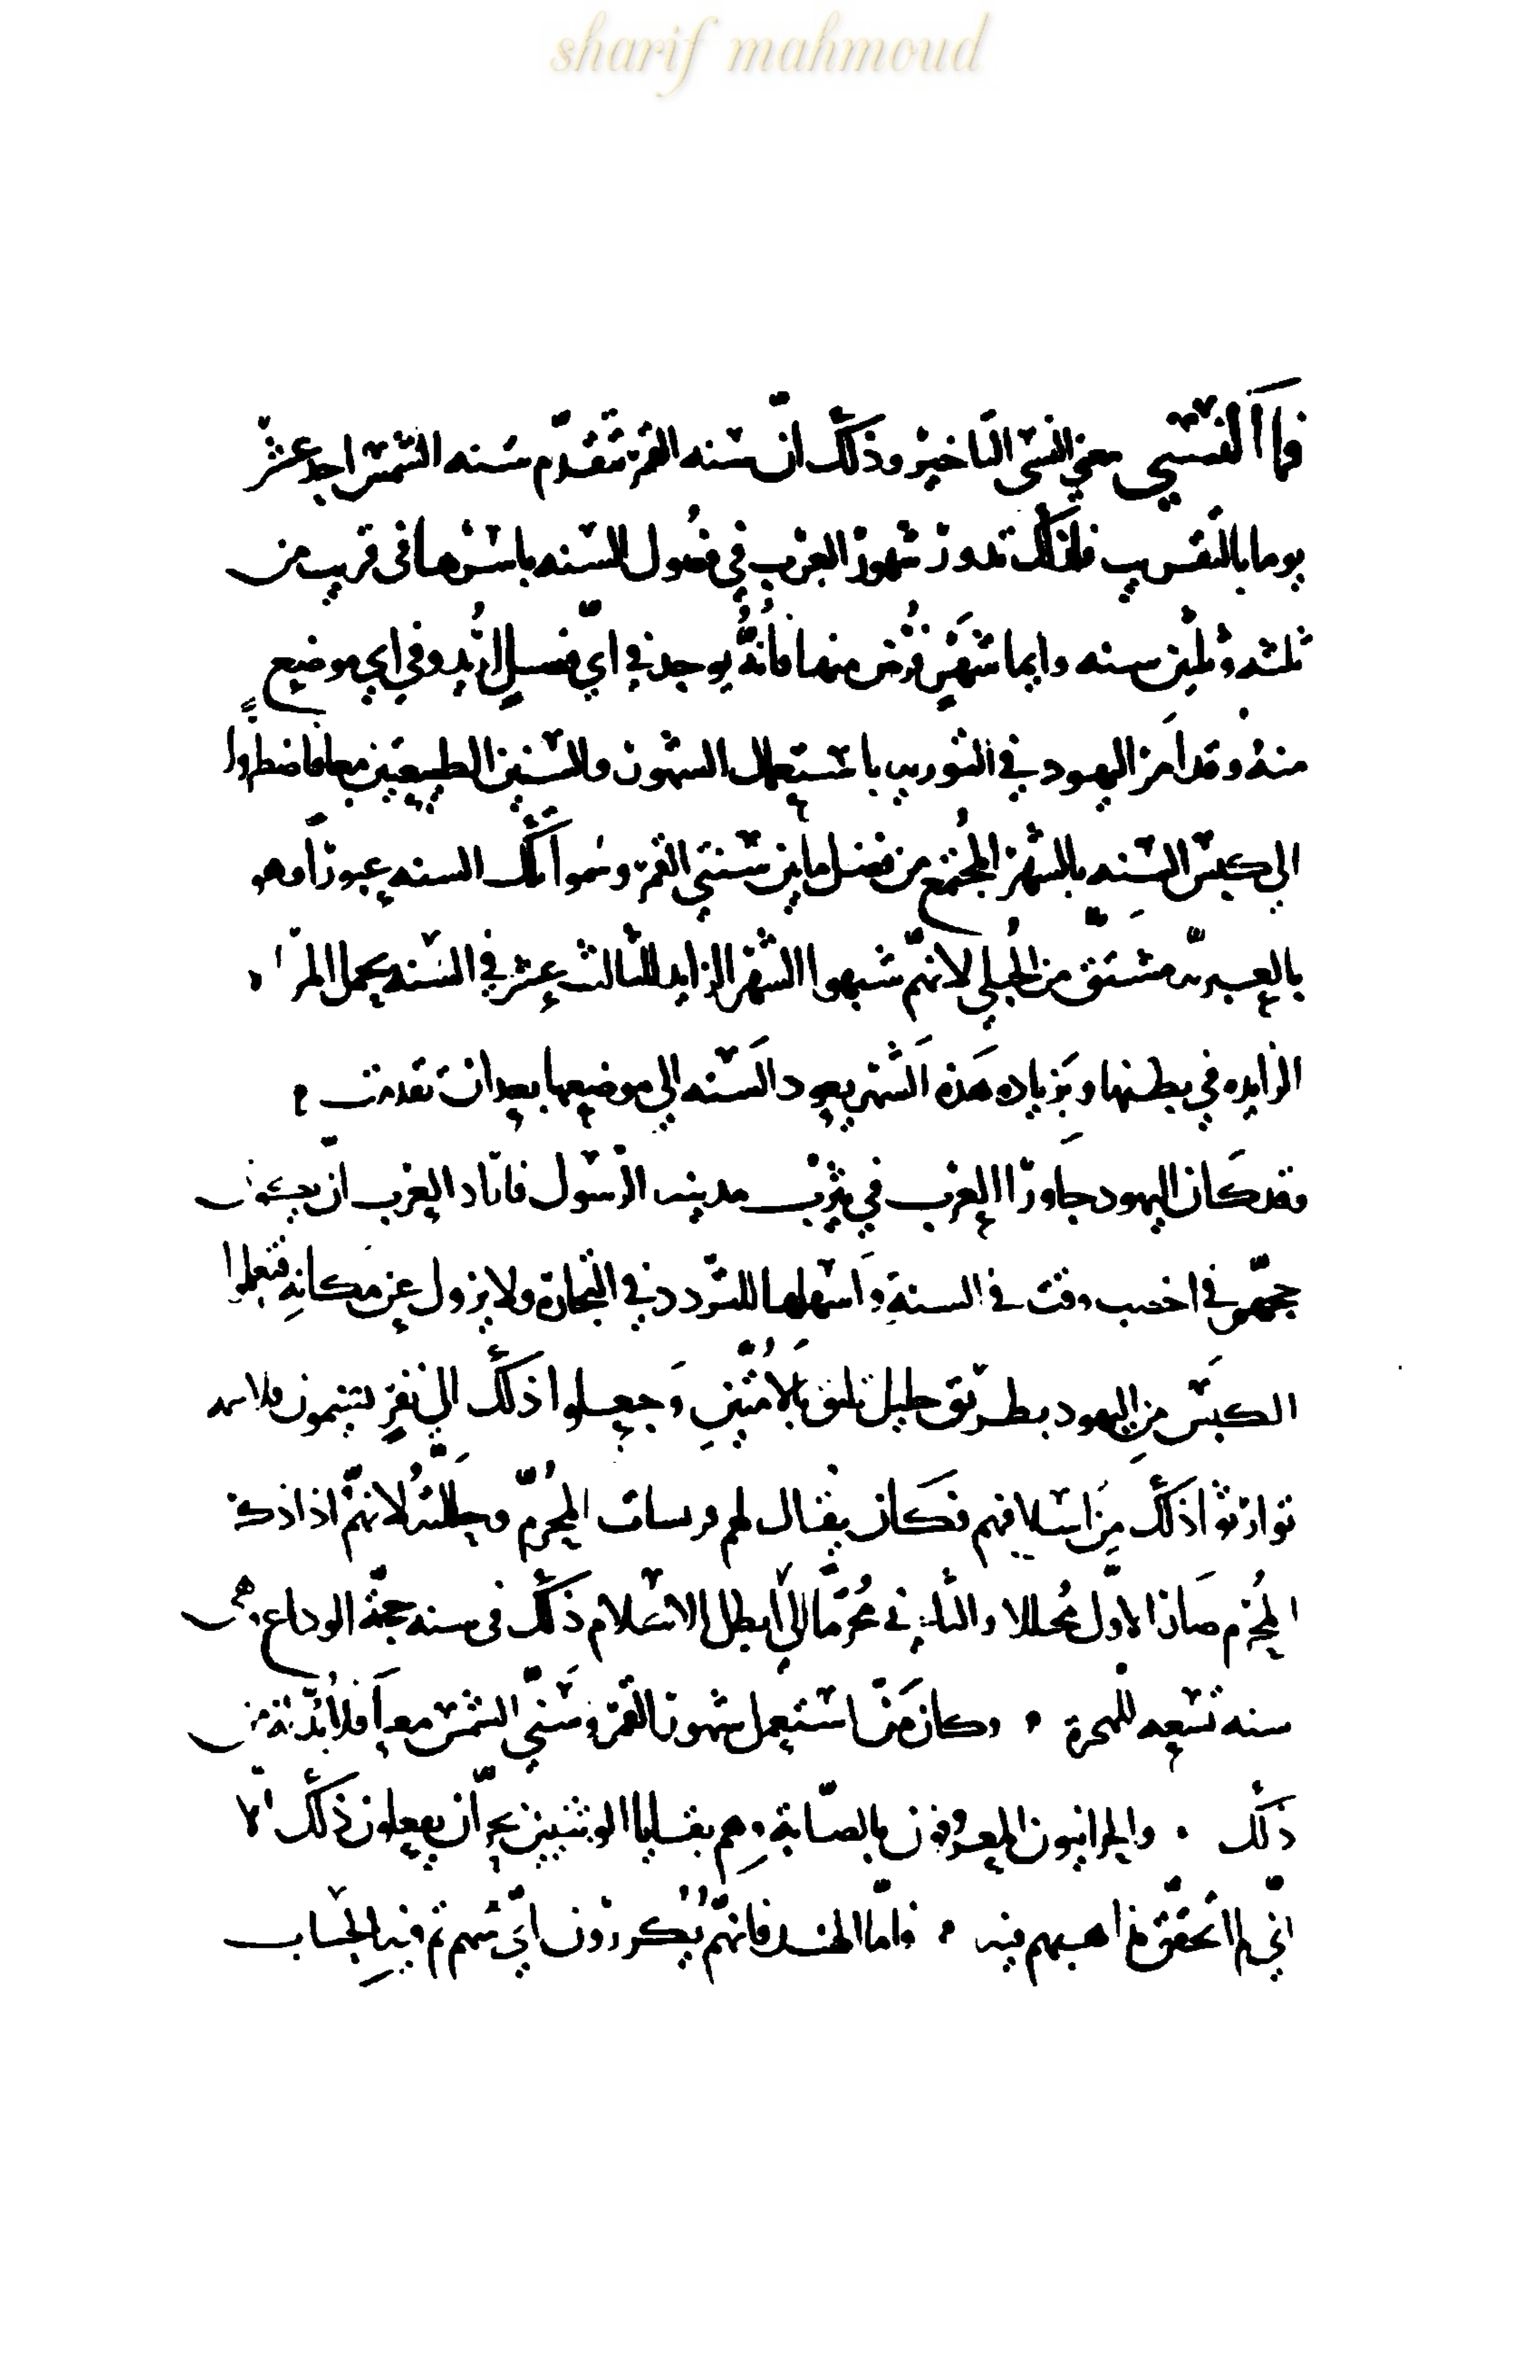 sharif mahmoud
فما النسى معنى النسى التاخير وذلك ان سنه القمر تتقدم سنه الشمس احد عشر
يوما بالتقريب فلذلك تدور شهور العرب في فصول السنه باسرها فى قريب من
ثلثه وثلثين سنه وايما شهر فرض منها فانه يوجد في اي فصل اريد وفي اي موضع
منه وقد امر اليهود في التوريه باستعمال الشهور والسنين الطبيعيين معا فاضطروا
الي كبس السنه بالشهر المجتمع من فضل ما بين سنتي القمر وسموا تلك السنه عبورا وهو
بالعبريه مشتق من الحبلي لانهم شبهوا الشهر الزايد الثالث عشر في السنه بحمل المراه
الزايده في بطنها وبزياده هذه الشهر يعود السنه الي موضعها بعد ان تقدمت
وقد كان اليهود جاوروا العرب في يثرب مدينه الرسول فاراد العرب ان يكون
حجهم في اخصب وقت في السنة واسهلها للتردد في التجارة ولا يزول عن مكانه فتعلموا
الكبس من اليهود بطريق جليل تليق بالاميين وجعلوا ذلك الي نفر يسمون قلامسه
توارثوا ذلك من اسلافهم فكان يقال لهم نسات المحرم ومحللته لانهم اذا ذكر
المحرم صار الاول محللا والثاني محرما الي ابطل الاسلام ذلك فى سنه حجة الوداع وهي
سنه تسعه للهجرة وكان من استعمل شهور القمر وسني الشمس معا فلا بد له من
ذلك . والحرانيون المعروفون بالصابة وهم بقايا الوثنيين بحران يفعلون ذلك الا
اني لم اتحقق مذاهبهم فيه فاما الهند فانهم يكررون اي شهر تم فيه الحساب